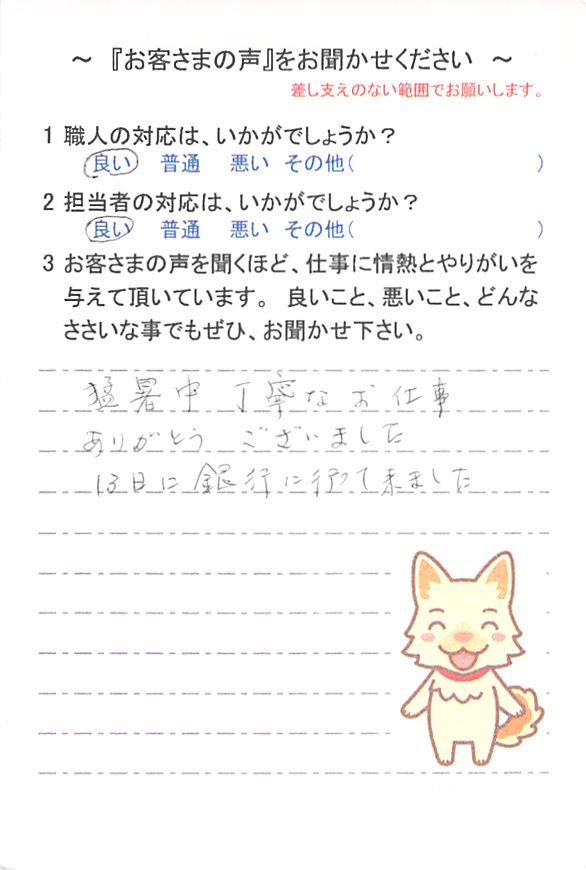 ～ 『お客さまの声』をお聞かせください ～
差し支えのない範囲でお願いします。
1 職人の対応は、いかがでしょうか？
良い 普通 悪い その他( )
2 担当者の対応は、いかがでしょうか？
良い 普通 悪い その他( )
3 お客さまの声を聞くほど、仕事に情熱とやりがいを
与えて頂いています。 良いこと、悪いこと、どんな
ささいな事でもぜひ、お聞かせ下さい。
猛暑中 丁寧なお仕事
ありがとう ございました
13日に銀行に行って来ました